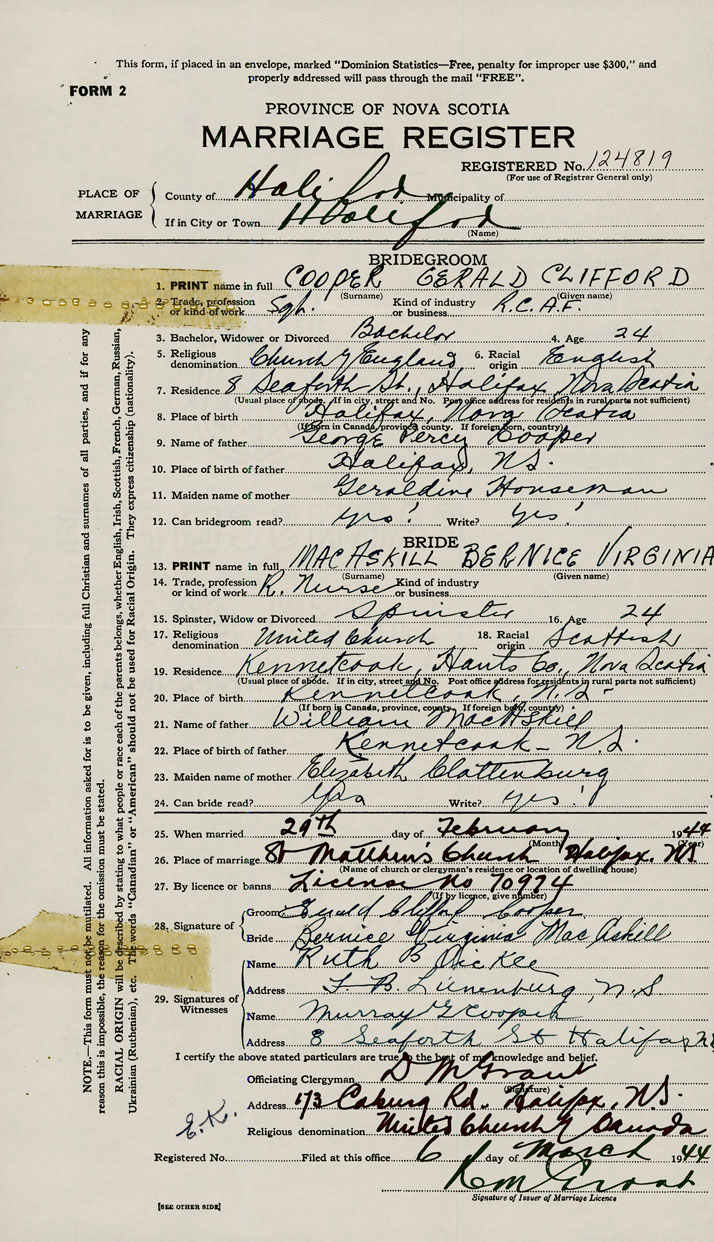 This form, if placed in an envelope, marked "Dominion Statistics—Free, penalty for improper use $300," and
properly addressed will pass through the mail "FREE".
FORM 2
PROVINCE OF NOVA SCOTIA
MARRIAGE REGISTER
REGISTERED No. 124819
(For use of Registrar General only)
PLACE OF MARRIAGE
County of Halifax Municipality of
If in City or Town Halifax
(Name)
BRIDEGROOM
1. PRINT name in full COOPER GERALD CLIFFORD
(Surname) (Given name)
2. Trade, profession or kind of work Sgt. Kind of industry or business R.C.A.F.
3. Bachelor, Widower or Divorced Bachelor 4. Age 24
5. Religious denomination Church of England 6. Racial origin English
7. Residence 8 Seaforth St., Halifax, Nova Scotia
(Usual place of abode. If in city, street and No. Post office address for residents in rural parts not sufficient)
8. Place of birth Halifax, Nova Scotia
(If born in Canada, province, county. If foreign born, country)
9. Name of father George Percy Cooper
10. Place of birth of father Halifax, N.S.
11. Maiden name of mother Geraldine Houseman
12. Can bridegroom read? yes! Write? yes!
BRIDE
13. PRINT name in full MACASKILL BERNICE VIRGINIA
(Surname) (Given name)
14. Trade, profession or kind of work R. Nurse Kind of industry or business
15. Spinster, Widow or Divorced Spinster 16. Age 24
17. Religious denomination United Church 18. Racial origin Scottish
19. Residence Kennetcook, Hants Co., Nova Scotia
(Usual place of abode. If in city, street and No. Post office address for residents in rural parts not sufficient)
20. Place of birth Kennetcook, N.S.
(If born in Canada, province, county. If foreign born, country)
21. Name of father William MacAskill
22. Place of birth of father Kennetcook - N.S.
23. Maiden name of mother Elizabeth Clattenburg
24. Can bride read? yes Write? yes!
25. When married 29th day of February 1944
(Month) (Year)
26. Place of marriage St Matthew's Church Halifax. NS
(Name of church or clergyman's residence or location of dwelling house)
27. By licence or banns License no 70974
(If by licence, give number)
28. Signature of
Groom Gerald Clifford Cooper
Bride Bernice Virginia MacAskill
29. Signatures of Witnesses
Name Ruth B
Address Lunenburg, N.S
Name Murray G Cooper
Address 8 Seaforth St Halifax NS
I certify the above stated particulars are true to the best of my knowledge and belief.
Officiating Clergyman D M Grant
(Signature)
Address 173 Coburg Rd. Halifax, N.S.
E.K.
Religious denomination United Church of Canada
Registered No. Filed at this office 6 day of March 1944
Signature of Issuer of Marriage Licence
[SEE OTHER SIDE]
NOTE.—This form must not be mutilated. All information asked for is to be given, including full Christian and surnames of all parties, and if for any
reason this is impossible, the reason for the omission must be stated.
RACIAL ORIGIN will be described by stating to what people or race each of the parents belongs, whether English, Irish, Scottish, French, German, Russian,
Ukrainian (Ruthenian), etc. The words "Canadian" or "American" should not be used for Racial Origin. They express citizenship (nationality).